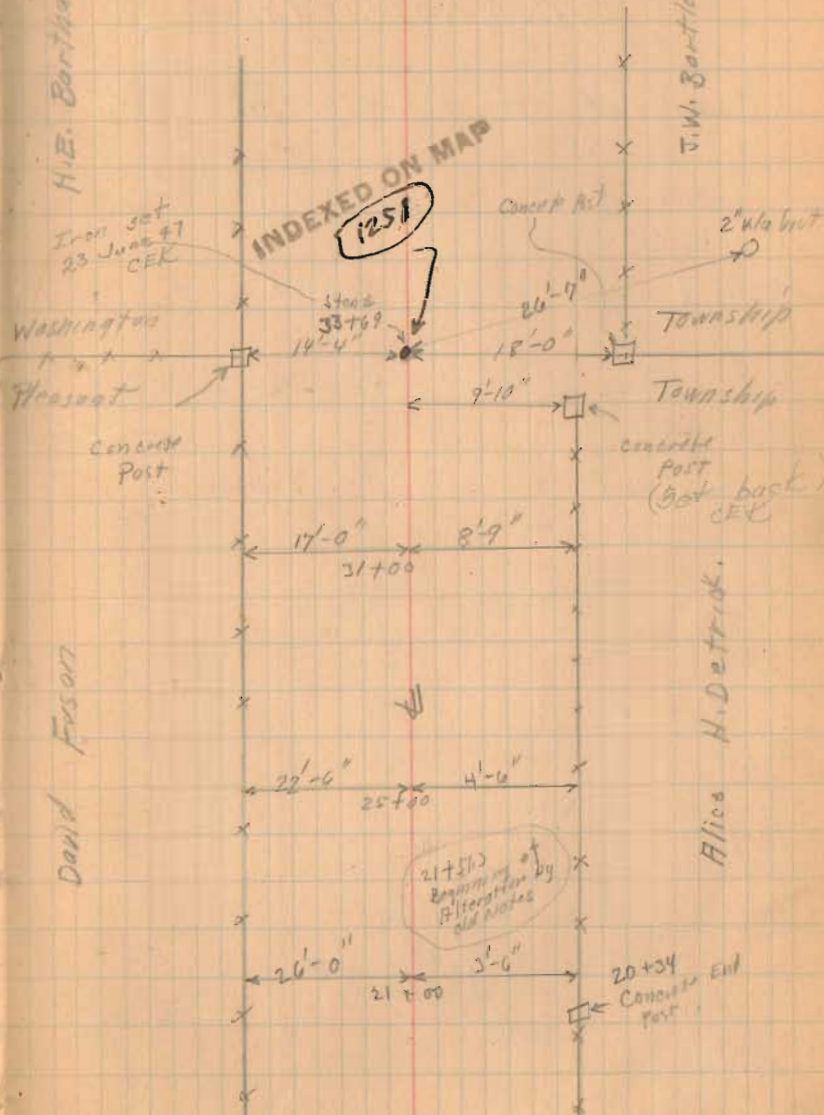 H.E.
J.W.
INDEXED ON MAP
1251
Concrete Post
Iron set
23 June 47
CEK
Stone
33+69
26'-7"
2"
Washington
Township
14'-4"
18'-0"
Pleasant
Township
9'-10"
Concrete
Post
Concrete
Post
(Set back)
CEK
17'-0"
8'-9"
31+00
David Fuson
Alice H. Detrick.
22'-6"
4'-6"
25+00
Beginning of
Alteration by
old Notes
26'-0"
3'-6"
21+00
20+34
Concrete End
Post